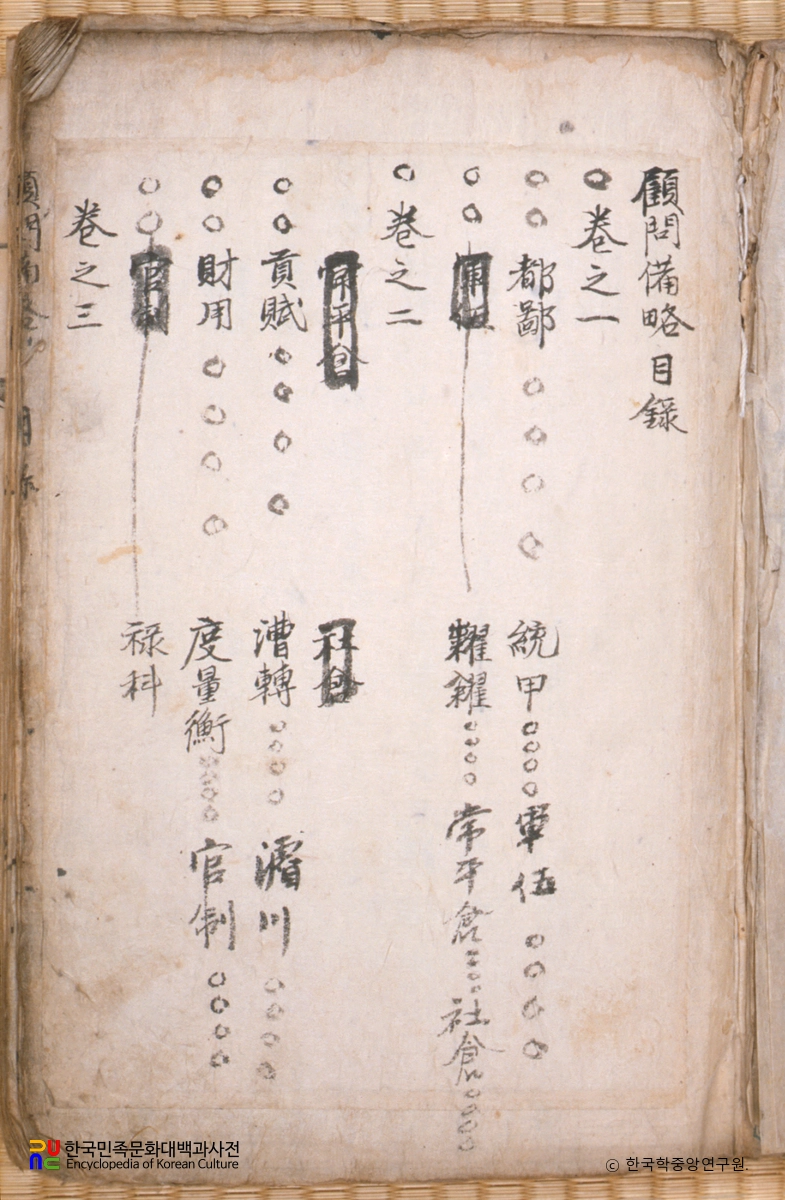 顧問備略目錄
○卷之一
○○都鄙○○○○統甲○○○○軍伍○○○○
○○軍伍 糶糴○○○○常平倉○○○○社倉○○○○
○卷之二
常平倉 社倉
○○貢賦○○○○漕轉○○○○濬川○○○○
○○財用○○○○度量衡○○○○官制○○○○
○○官制 祿科
卷之三
한국민족문화대백과사전
Encyclopedia of Korean Culture
© 한국학중앙연구원.